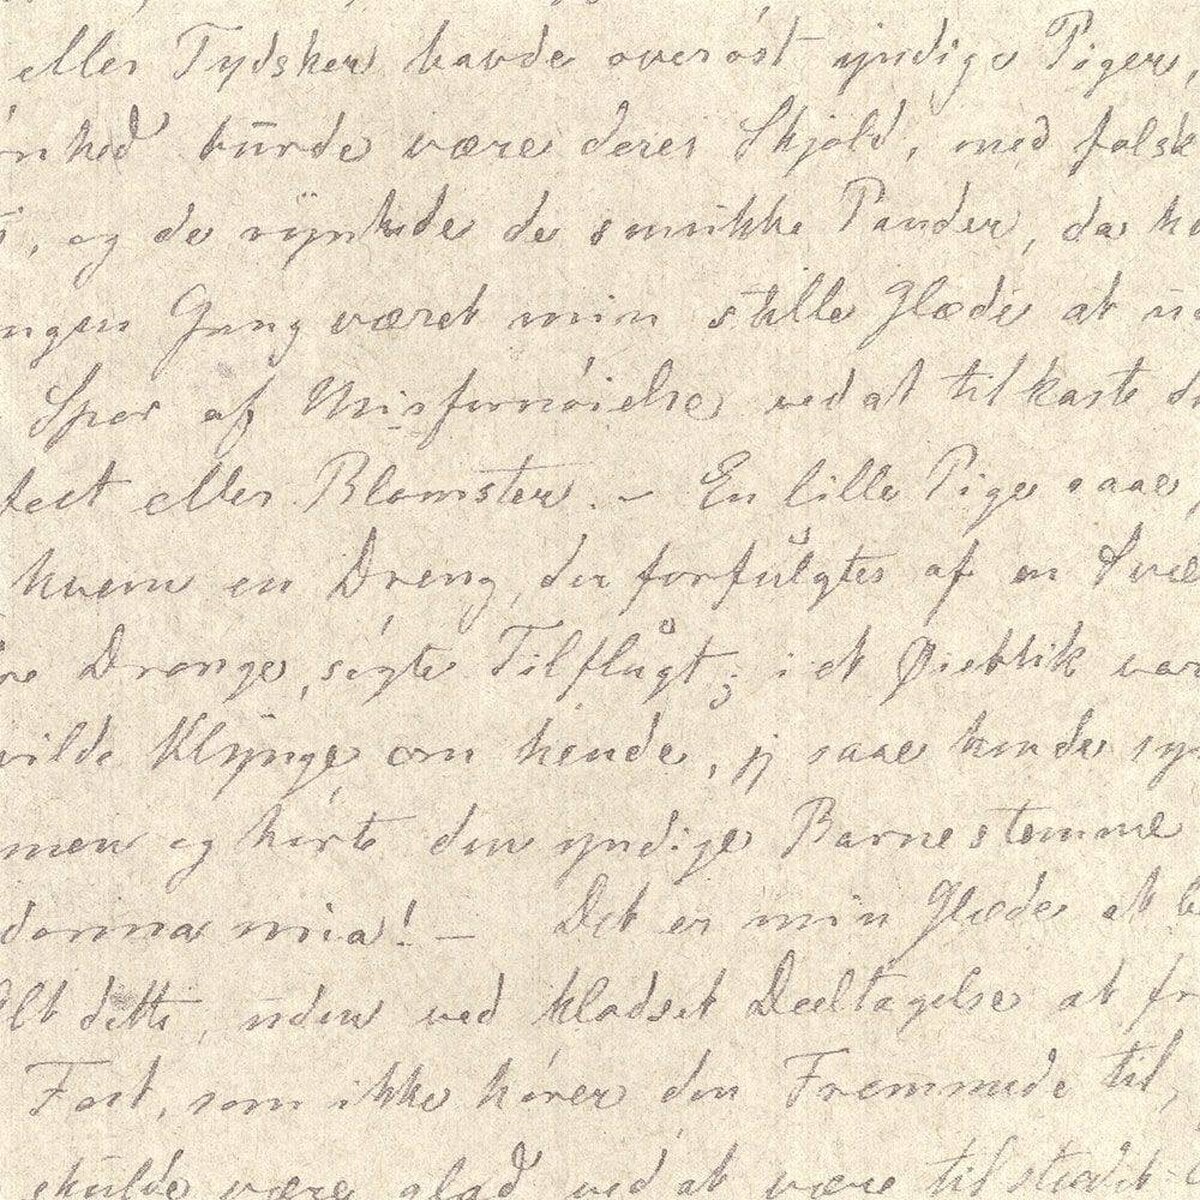 eller Tydsker havde overøst yndige Piger,
ønhed burde være deres Skjold, med falsk
, og de rynkede de smukke Pander, da ha
ngen Gang været min stille Glæde at
Spor af Misfornøielse ved at tilkaste d
fect eller Blomster. – En lille Pige saae,
hvem en Dreng, der forfulgtes af en Svæ
re Drenge, søgte Tilflugt; i et Øieblik var
vilde Klynge om hende, jeg saae hendes
men og hørte den yndige Barnestemme
donna mia! – Det er min Glæde at
Alt dette, uden ved kladset Deeltagelse at
Fest, som ikke hører den Fremmede til,
skulde være glad ved at være tilstede